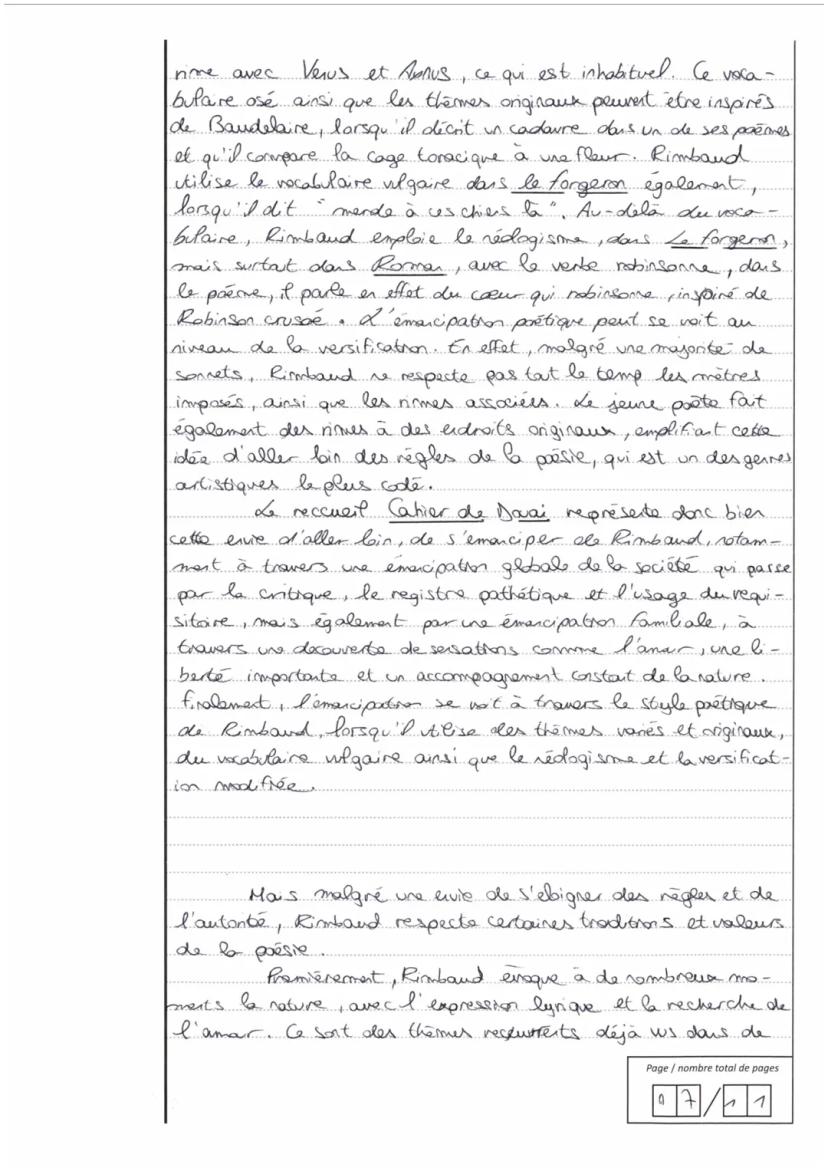 rime avec Venus et Anus, ce qui est inhabituel. Ce voca-
bulaire osé ainsi que les thèmes originaux peuvent être inspirés
de Baudelaire, lorsqu'il décrit un cadavre dans un de ses poèmes
et qu'il compare la cage toracique à une fleur. Rimbaud
utilise le vocabulaire vulgaire dans le forgeron également,
lorsqu'il dit "merde à ces chiens là". Au-delà du voca-
bulaire, Rimbaud emploie le néologisme, dans Le forgeron,
mais surtout dans Roman, avec le verbe robinsonne, dans
le poème, il parle en effet du cœur qui robinsonne, inspiré de
Robinson crusoé. L'émancipation poétique peut se voit au
niveau de la versification. En effet, malgré une majorité de
sonnets, Rimbaud ne respecte pas tout le temp les mètres
imposés, ainsi que les rimes associées. Le jeune poète fait
également des rimes à des endroits originaux, emplifiant cette
idée d'aller loin des règles de la poésie, qui est un des genres
artistiques le plus codé.
Le reccueil Cahier de Douai représente donc bien
cette envie d'aller loin, de s'émanciper de Rimbaud, notam-
ment à travers une émancipation globale de la société qui passe
par la critique, le registre pathétique et l'usage du requi-
sitoire, mais également par une émancipation familiale, à
travers une decouverte de sensations comme l'amour, une li-
berté importante et un accompagnement constant de la nature.
finalement, l'émancipation se voit à travers le style poétique
de Rimbaud, lorsqu'il utilise des thèmes variés et originaux,
du vocabulaire vulgaire ainsi que le néologisme et la versificat-
ion modifiée.
Mais malgré une envie de s'éloigner des règles et de
l'autorité, Rimbaud respecte certaines traditions et valeurs
de la poésie.
Premièrement, Rimbaud évoque à de nombreux mo-
ments la nature, avec l'expression lyrique et la recherche de
l'amour. Ce sont des thèmes reccurrents déjà vus dans de
Page / nombre total de pages
07/11